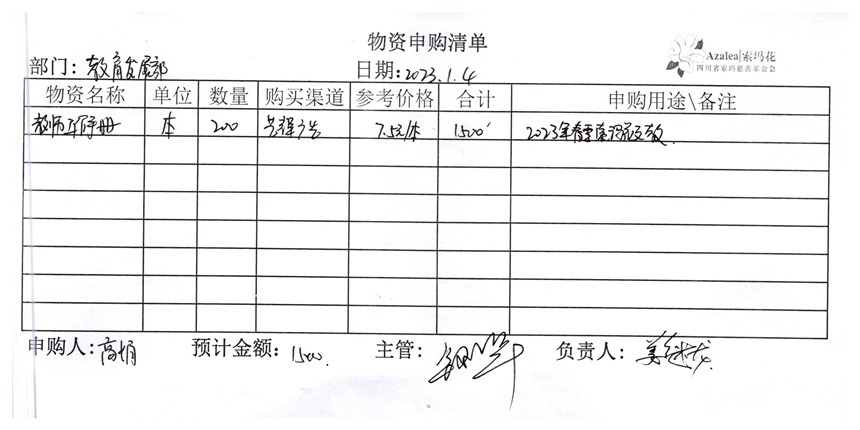 物资申购清单
Azalea|索玛花
四川省索玛慈善基金会
部门：教育发展部 日期：2023.1.4
物资名称 单位 数量 购买渠道 参考价格 合计 申购用途\备注
教师工作手册 本 200 7.5元/本 1500 2023年春季
申购人：高娟 预计金额：1500. 主管： 负责人：